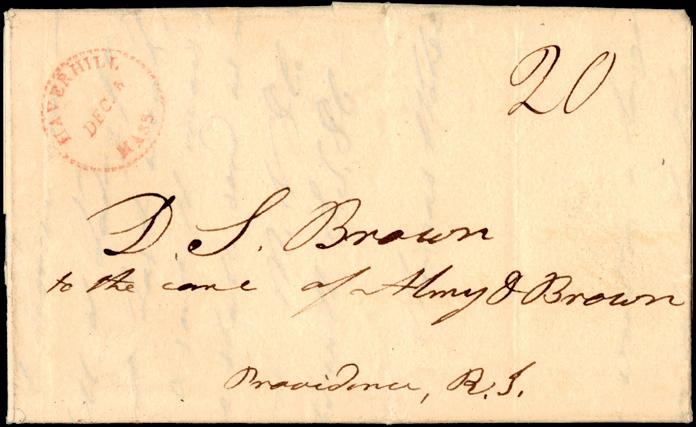 HAVERHILL
DEC. 4
MASS
20
D. S. Brown
to the care of Almy & Brown
Providence, R.I.